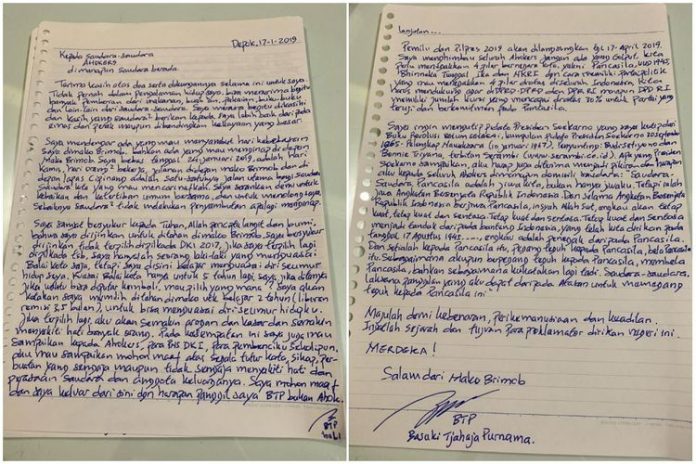 Depok, 17-1-2019
Kepada saudara-saudara
AHOKERS
di manapun saudara berada
Terima kasih atas doa serta dukungannya selama ini untuk saya.
Tidak pernah dalam pengalaman hidup saya, bisa menerima begitu
banyak pemberian dari makanan, buah 2an, pakaian, buku buku
dan lain-lain dari saudara-saudara. Saya merasa begitu dikasihi
dan kasih yang saudara2 berikan kepada saya lebih baik dari pada
emas dan perak maupun dibandingkan kekayaan yang besar.
Saya mendengar ada yang mau menyambut hari kebebasan
saya dimako Brimob, bahkan ada yang mau menginap di depan
Mako Brimob. Saya bebas tanggal 24 januari 2019, adalah hari
kamis, hari orang2 bekerja, jalanan didepan mako Brimob dan di
depan lapas Cipinang adalah satu-satunya jalan utama bagi saudara
saudara kita yang mau mencari nafkah. Saya sarankan demi untuk
kebaikan dan ketertiban umum bersama, dan untuk menolong saya,
sebaiknya saudara2 tidak melakukan penyambutan apalagi menginap.
Saya sangat bersyukur kepada Tuhan, Allah pencipta langit dan bumi,
bahwa saya diijinkan untuk ditahan dimako Brimob. Saya bersyukur
diijinkan tidak terpilih dipilkada DKI 2017, jika saya terpilih lagi
dipilkada tsb, saya hanyalah seorang laki-laki yang menguasai
Balai kota saja, tetapi saya disini belajar menguasai diri seumur
hidup saya. Kuasai Balai kota hanya untuk 5 tahun lagi saja. Jika ditanya
jika waktu bisa diputar kembali, mau pilih yang mana? Saya akan
katakan saya memilih ditahan dimako utk belajar 2 tahun (liburan
remisi 3,5 bulan), untuk bisa menguasai diri seumur hidupku.
Jika terpilih lagi, aku akan semakin arogan dan kasar dan semakin
menyakiti hati banyak orang. Pada kesempatan ini saya juga mau
sampaikan kepada Ahokers, para BIS DKI, para pembenciku sekalipun,
aku mau sampaikan mohon maaf atas segala tutur kata, sikap, per-
buatan yang sengaja maupun tidak sengaja menyakiti hati dan
perasaan saudara dan anggota keluarganya. Saya mohon maaf
dan saya keluar dari sini dgn harapan panggil saya BTP bukan Ahok.
BTP
lanjutan...
Pemilu dan Pilpres 2019 akan dilangsungkan tgl 17 April 2019.
Saya menghimbau seluruh Ahokers jangan ada yang Golput. Kita
perlu menegakkan 4 pilar bernegara kita, yakni Pancasila, UUD 1945,
Bhinneka Tunggal Ika dan NKRI dgn cara memiliki partai politik
yang mau menegakkan 4 pilar diatas di seluruh Indonesia. Kita
harus mendukung agar di DPRD-DPRD dan DPR RI maupun DPD RI
memiliki jumlah kursi yang mencapai diatas 30% untuk Partai yang
teruji dan berkomitmen pada Pancasila.
Saya ingin mengutip Pidato Presiden Soekarno yang saya kutip dari
Buku Revolusi Belum Selesai, kumpulan Pidato Presiden Soekarno 30 september
1965 - Pelengkap Nawaksara (10 januari 1967), penyunting: Budi Setiyono dan
Bonnie Triyana, terbitan Serambi (www.serambi.co.id). Apa yang Presiden
Soekarno sampaikan, aku harap bisa diterima menjadi pikiran dan harapan
aku kepada seluruh Ahokers dimanapun domisili saudara: "Saudara-
Saudara, Pancasila adalah jiwa kita, bukan hanya jiwaku. Tetapi ialah
jiwa Angkatan Bersenjata Republik Indonesia. Dan selama Angkatan Bersenjata
Republik Indonesia berjiwa Pancasila, Insya Allah SWT, engkau akan tetap
kuat, tetap kuat dan sentosa. Tetap kuat dan sentosa. Tetap kuat dan sentosa
menjadi tanduk daripada banteng Indonesia, yang telah kita dirikan pada
tanggal 17 Agustus 1945 ....., engkau adalah penegak daripada Pancasila.
Dan setialah kepada Pancasila itu, pegang teguh kepada Pancasila, bela Pancasila
itu. Sebagaimana akupun berpegang teguh kepada Pancasila, membela
Pancasila, bahkan sebagaimana kukatakan lagi tadi. Saudara-saudara,
laksana panggilan yang aku dapat daripada Atasan untuk memegang
teguh kepada Pancasila ini".
Majulah demi kebenaran, perikemanusiaan dan keadilan.
Ingatlah sejarah dan tujuan para proklamator dirikan negeri ini.
MERDEKA!
Salam dari Mako Brimob
BTP
Basuki Tjahaja Purnama.